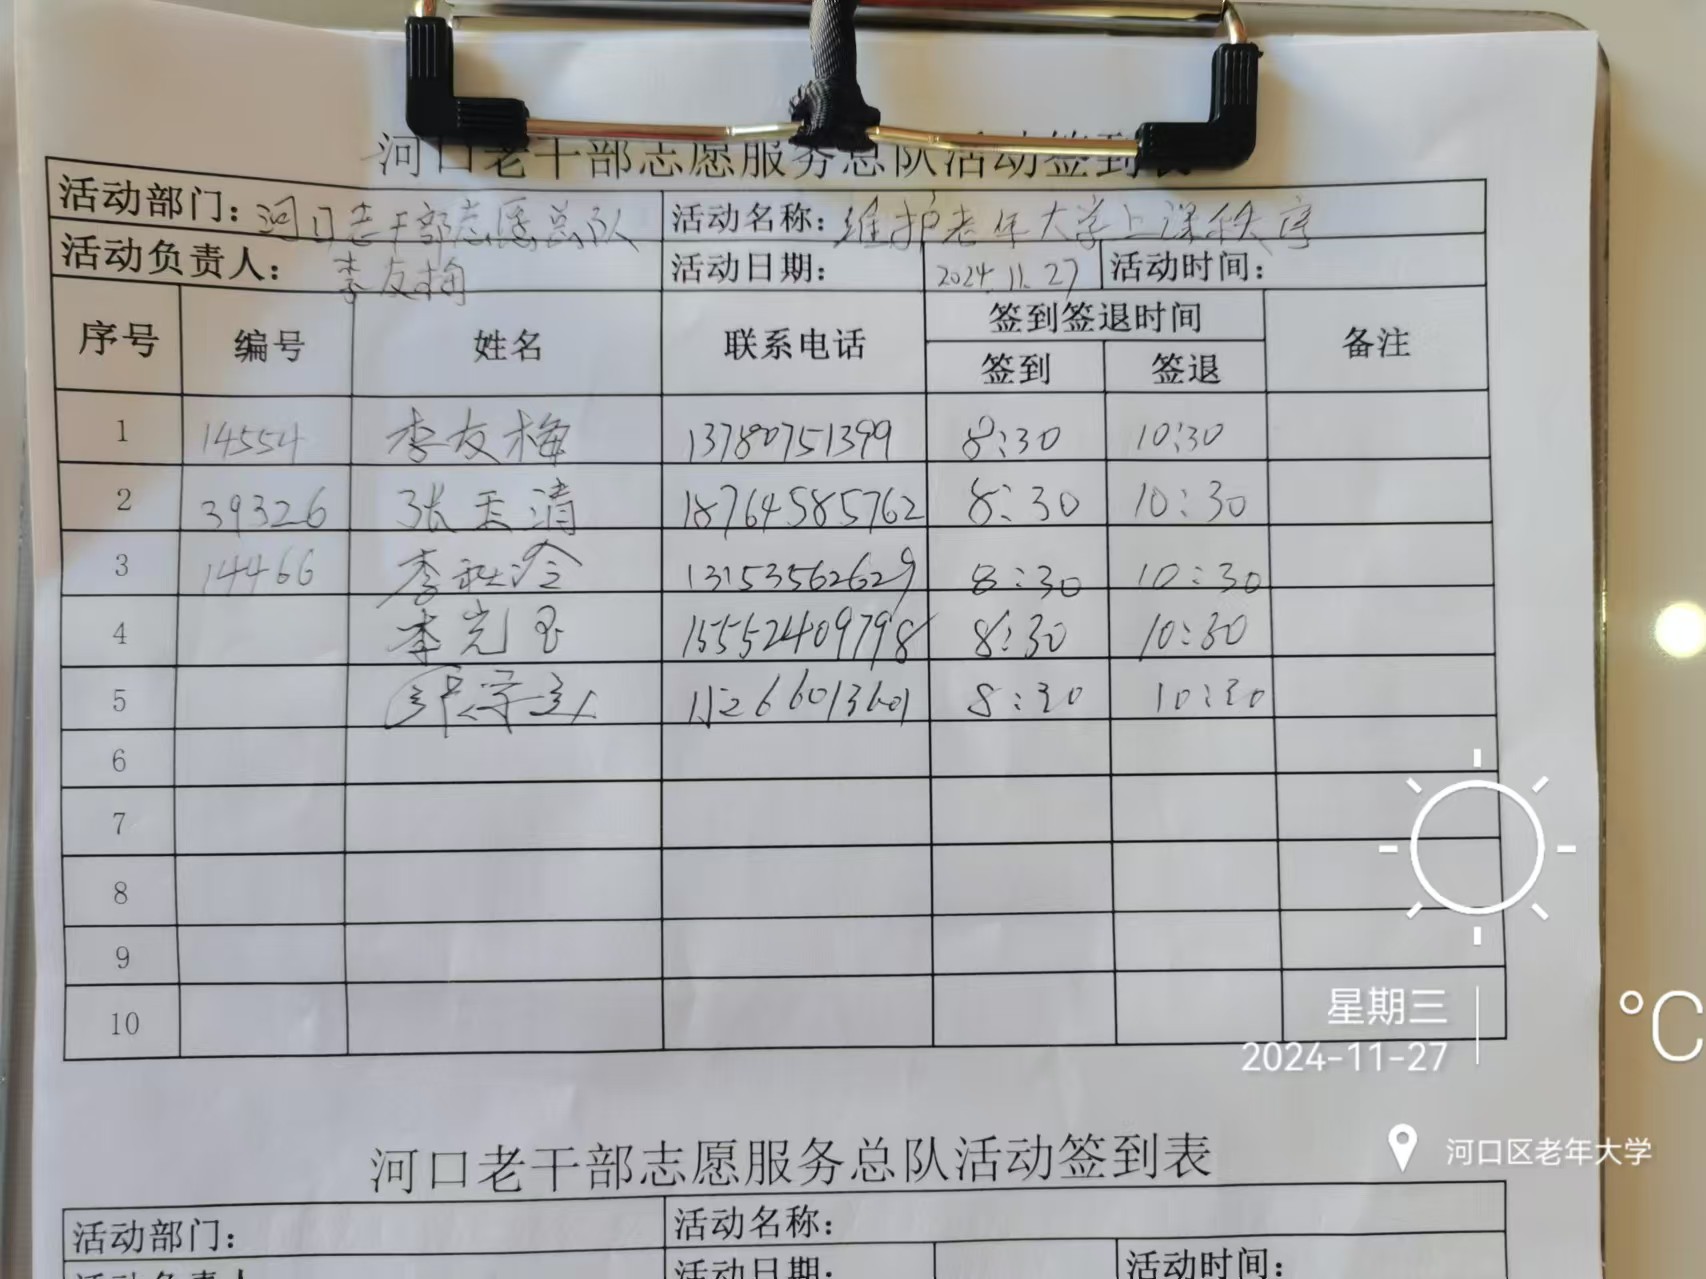 河口老干部志愿服务总队活动签到表
活动部门：河口老干部志愿总队 活动名称：维护老年大学上课秩序
活动负责人：李友梅 活动日期：2024.11.27 活动时间：
序号 编号 姓名 联系电话 签到签退时间 备注
签到 签退
1 14554 李友梅 13780751399 8:30 10:30
2 39326 张玉清 18764585762 8:30 10:30
3 14466 李 13153562629 8:30 10:30
4 李光玉 15552409798 8:30 10:30
5 15266013601 8:30 10:30
6
7
8
9
10
星期三
2024-11-27
°C
河口区老年大学
河口老干部志愿服务总队活动签到表
活动部门： 活动名称：
活动负责人 活动日期： 活动时间：